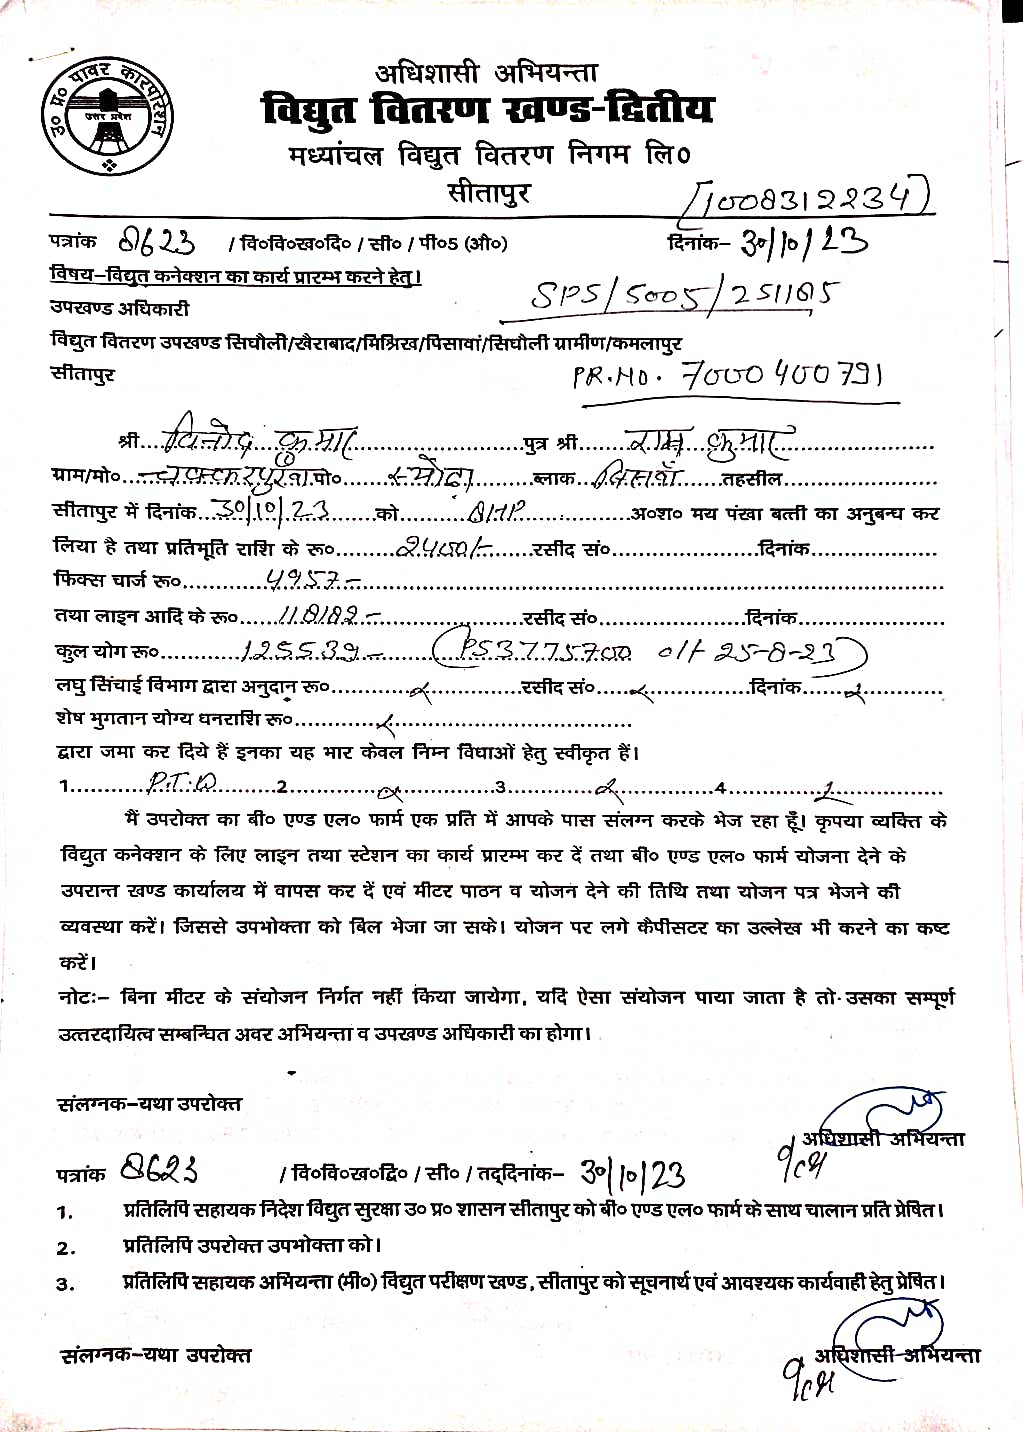 उ० प्र० पावर कारपोरेशन
उत्तर प्रदेश
अधिशासी अभियन्ता
विद्युत वितरण खण्ड-द्वितीय
मध्यांचल विद्युत वितरण निगम लि०
सीतापुर
[1008312234]
पत्रांक 8623 / वि०वि०ख०दि० / सी० / पी०5 (ओ०) दिनांक– 30/10/23
विषय–विद्युत कनेक्शन का कार्य प्रारम्भ करने हेतु।
SPS/5005/251185
उपखण्ड अधिकारी
विद्युत वितरण उपखण्ड सिधौली/खैराबाद/मिश्रिख/पिसावां/सिधौली ग्रामीण/कमलापुर
सीतापुर PR.NO. 7000400791
श्री....विनोद कुमार....पुत्र श्री....राम कुमार....
ग्राम/मो०....चक्करपुरवा पो०....स्योढा....ब्लाक....बिसवाँ....तहसील....
सीतापुर में दिनांक...30/10/23....को....8HP....अ०श० मय पंखा बत्ती का अनुबन्ध कर
लिया है तथा प्रतिभूति राशि के रू०....2400/-....रसीद सं०....दिनांक....
फिक्स चार्ज रू०....4957-....
तथा लाइन आदि के रू०....118182-....रसीद सं०....दिनांक....
कुल योग रू०....125539-....(PS3775700 off 25-8-23)
लघु सिंचाई विभाग द्वारा अनुदान रू०....रसीद सं०....दिनांक....
शेष भुगतान योग्य धनराशि रू०....
द्वारा जमा कर दिये हैं इनका यह भार केवल निम्न विधाओं हेतु स्वीकृत हैं।
1....P.T.W....2....3....4....
मैं उपरोक्त का बी० एण्ड एल० फार्म एक प्रति में आपके पास संलग्न करके भेज रहा हूँ। कृपया व्यक्ति के
विद्युत कनेक्शन के लिए लाइन तथा स्टेशन का कार्य प्रारम्भ कर दें तथा बी० एण्ड एल० फार्म योजना देने के
उपरान्त खण्ड कार्यालय में वापस कर दें एवं मीटर पाठन व योजन देने की तिथि तथा योजन पत्र भेजने की
व्यवस्था करें। जिससे उपभोक्ता को बिल भेजा जा सके। योजन पर लगे कैपीसटर का उल्लेख भी करने का कष्ट
करें।
नोटः– बिना मीटर के संयोजन निर्गत नहीं किया जायेगा, यदि ऐसा संयोजन पाया जाता है तो उसका सम्पूर्ण
उत्तरदायित्व सम्बन्धित अवर अभियन्ता व उपखण्ड अधिकारी का होगा।
संलग्नक–यथा उपरोक्त
अधिशासी अभियन्ता
पत्रांक 8623 / वि०वि०ख०द्वि० / सी० / तद्दिनांक– 30/10/23
1. प्रतिलिपि सहायक निदेश विद्युत सुरक्षा उ० प्र० शासन सीतापुर को बी० एण्ड एल० फार्म के साथ चालान प्रति प्रेषित।
2. प्रतिलिपि उपरोक्त उपभोक्ता को।
3. प्रतिलिपि सहायक अभियन्ता (मी०) विद्युत परीक्षण खण्ड, सीतापुर को सूचनार्थ एवं आवश्यक कार्यवाही हेतु प्रेषित।
संलग्नक–यथा उपरोक्त अधिशासी अभियन्ता